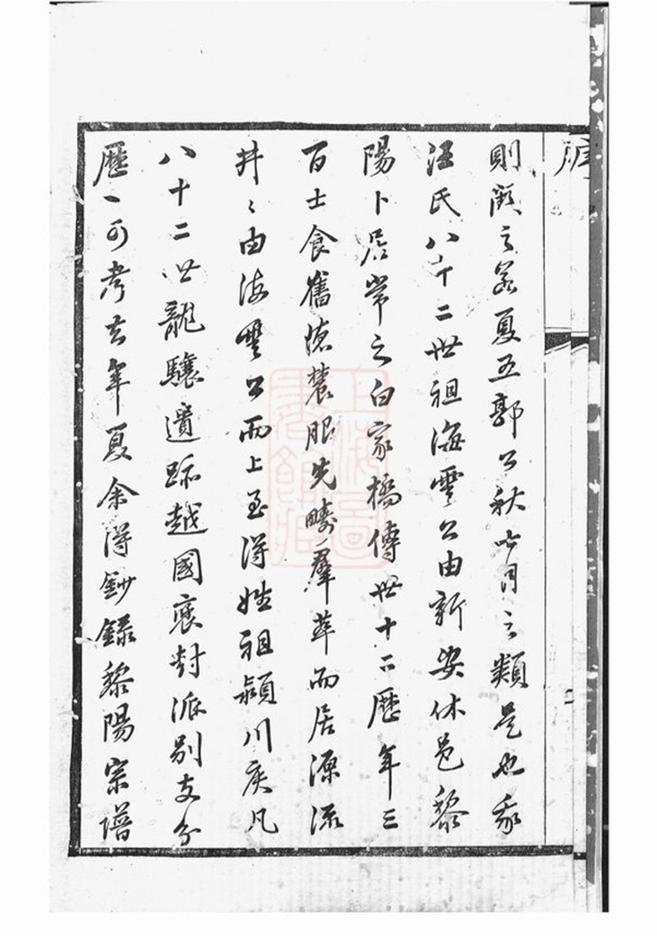 序
則闕之若夏五郭公秋七月之類是也我
汪氏八十二世祖海雲公由新安休邑黎
陽卜居常之白家橋傳世十二歷年三
百士食舊德農服先疇羣萃而居源流
井〻由海雲公而上至得姓祖潁川侯凡
八十二世龍驤遺跡越國褒封派別支分
歷〻可考去年夏余得鈔錄黎陽宗譜
上海圖書館藏